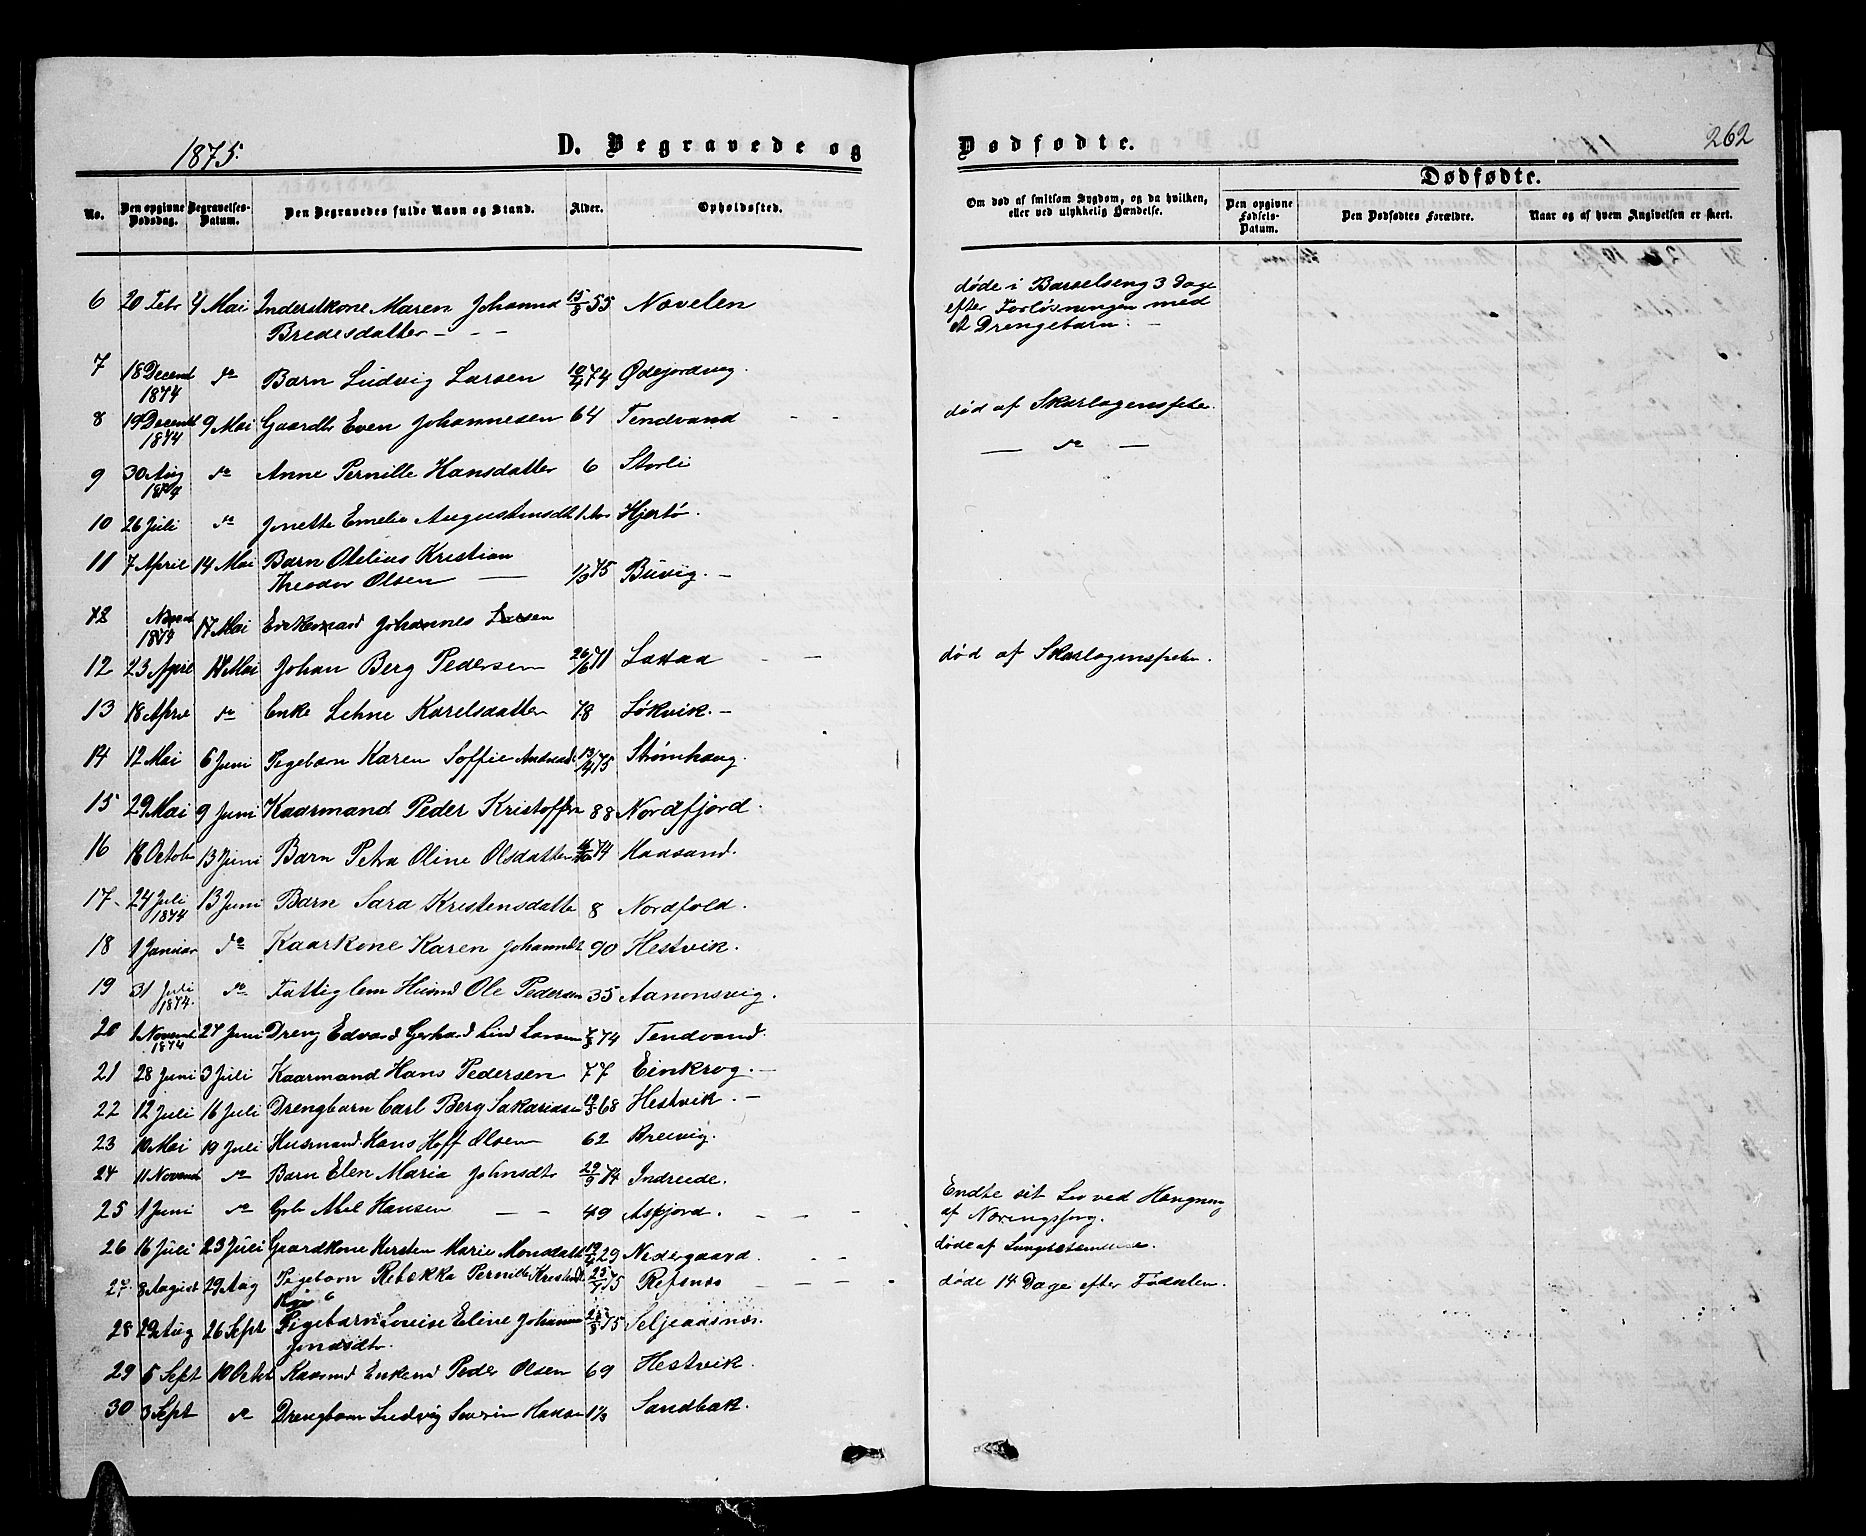 1875.
D. Begravede og
Dødfødte.
262
No.
Den opgivne Dødsdag.
Begravelses-Datum.
Den Begravedes fulde Navn og Stand.
Alder.
Opholdssted.
Om død af smitsom Sygdom, og da hvilken, eller ved ulykkelig Hændelse.
Dødfødte.
Den opgivne Fødsels-Datum.
Den Dødfødtes Forældre.
Naar og af hvem Angivelsen er skeet.
6 20 Febr 4 Mai Inderstkone Maren Johanna 15/8 55 Nævelen døde i Barselseng 3 Dage
Bredesdatter - - - efter Forløsningen med
et Drengebarn. -
7 18 Decemb 1874 do Barn Ludvig Larsen 10/4 74 Ødejordvig.
8 19 Decemb 1874 9 Mai Gaardbr Even Johannesen 64 Tendvand - - død af Skarlagensfeber.
9 30 Aug 1874 do Anne Pernille Hansdatter 6 Storli — do —
10 26 Juli do Jonette Emelie Augustinsdt 1 Hjertø.
11 7 April 14 Mai Barn Otelius Kristian
Theodor Olsen — 1/3 75 Buvig. -
12 1874 17 Mai Enkemand Johannes Larsen
12 23 April 17 Mai Johan Berg Pedersen 26/6 71 Laxaa - - død af Skarlagensfeber.
13 18 April do Enke Lehne Karelsdatter 78 Løkvik. -
14 12 Mai 6 Juni Pigebarn Karen Soffie Andreasd 13/4 75 Strømhaug.
15 29 Mai 9 Juni Kaarmand Peder Kristoffersen 88 Nordfjord.
16 18 Octob 13 Juni Barn Petra Oline Olsdatter 74 Haasand.
17 24 Juli 1874 13 Juni Barn Sara Kristensdatte 8 Nordfold.
18 1 Januar do Kaarkone Karen Johannsdt 90 Hestvik.
19 31 Juli 1874. do Fattiglem Husmd Ole Pedersen 35 Aanonsvig.
20 1 Novemb 1874 27 Juni Dreng Edvard Gerhard Lind Larsen 7/8 74 Tendvand.
21 28 Juni 3 Juli Kaarmand Hans Pedersen 77 Einkrog. -
22 12 Juli 16 Juli Drengbarn Carl Berg Sakariasen 68 Hestvik. -
23 10 Mai 19 Juli Husmand Hans Hoff Olsen 62 Breivig.
24 11 Novemb do Barn Elen Maria Johnsdt 29/9 74 Indreide.
25 1 Juni do Gbr Abel Hansen - - 49 Asfjord. - - - Endte sit Liv ved Hængning
af Næringssorg.
26 16 Juli 23 Juli Gaardkone Kersten Marie Monsdatt 29 Nedergaard - - døde af Lungebetændelse.
27 8 August 29 Aug Pigebarn Rebekka Pernille Kristensdt 25/7 75 Refsnæs - - - døde 14 Dage efter Fødselen.
28 29 Aug 26 Sept Pigebarn Lovise Eline Johanna 22/8 75 Seljeaasnæs.
Jonasdt.
29 5 Sept 10 Octob Kaarmd Enkemd Peder Olsen 69 Hestvik.
30 3 Sept do Drengbarn Ludvig Severin Hansen 1 1/3 Sandbak.